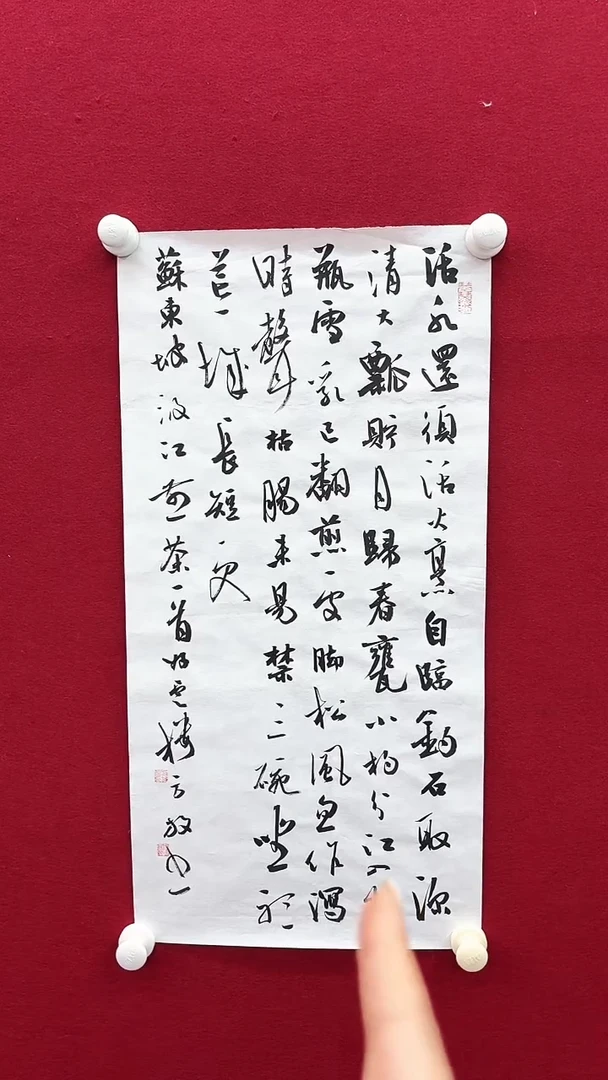 活水還須活火烹自臨釣石取深
清大瓢貯月歸春甕小杓分江入
瓶雪乳已翻煎處腳松風忽作瀉
時聲枯腸未易禁三碗坐聽
荒城長短更
蘇東坡汲江煎茶一首